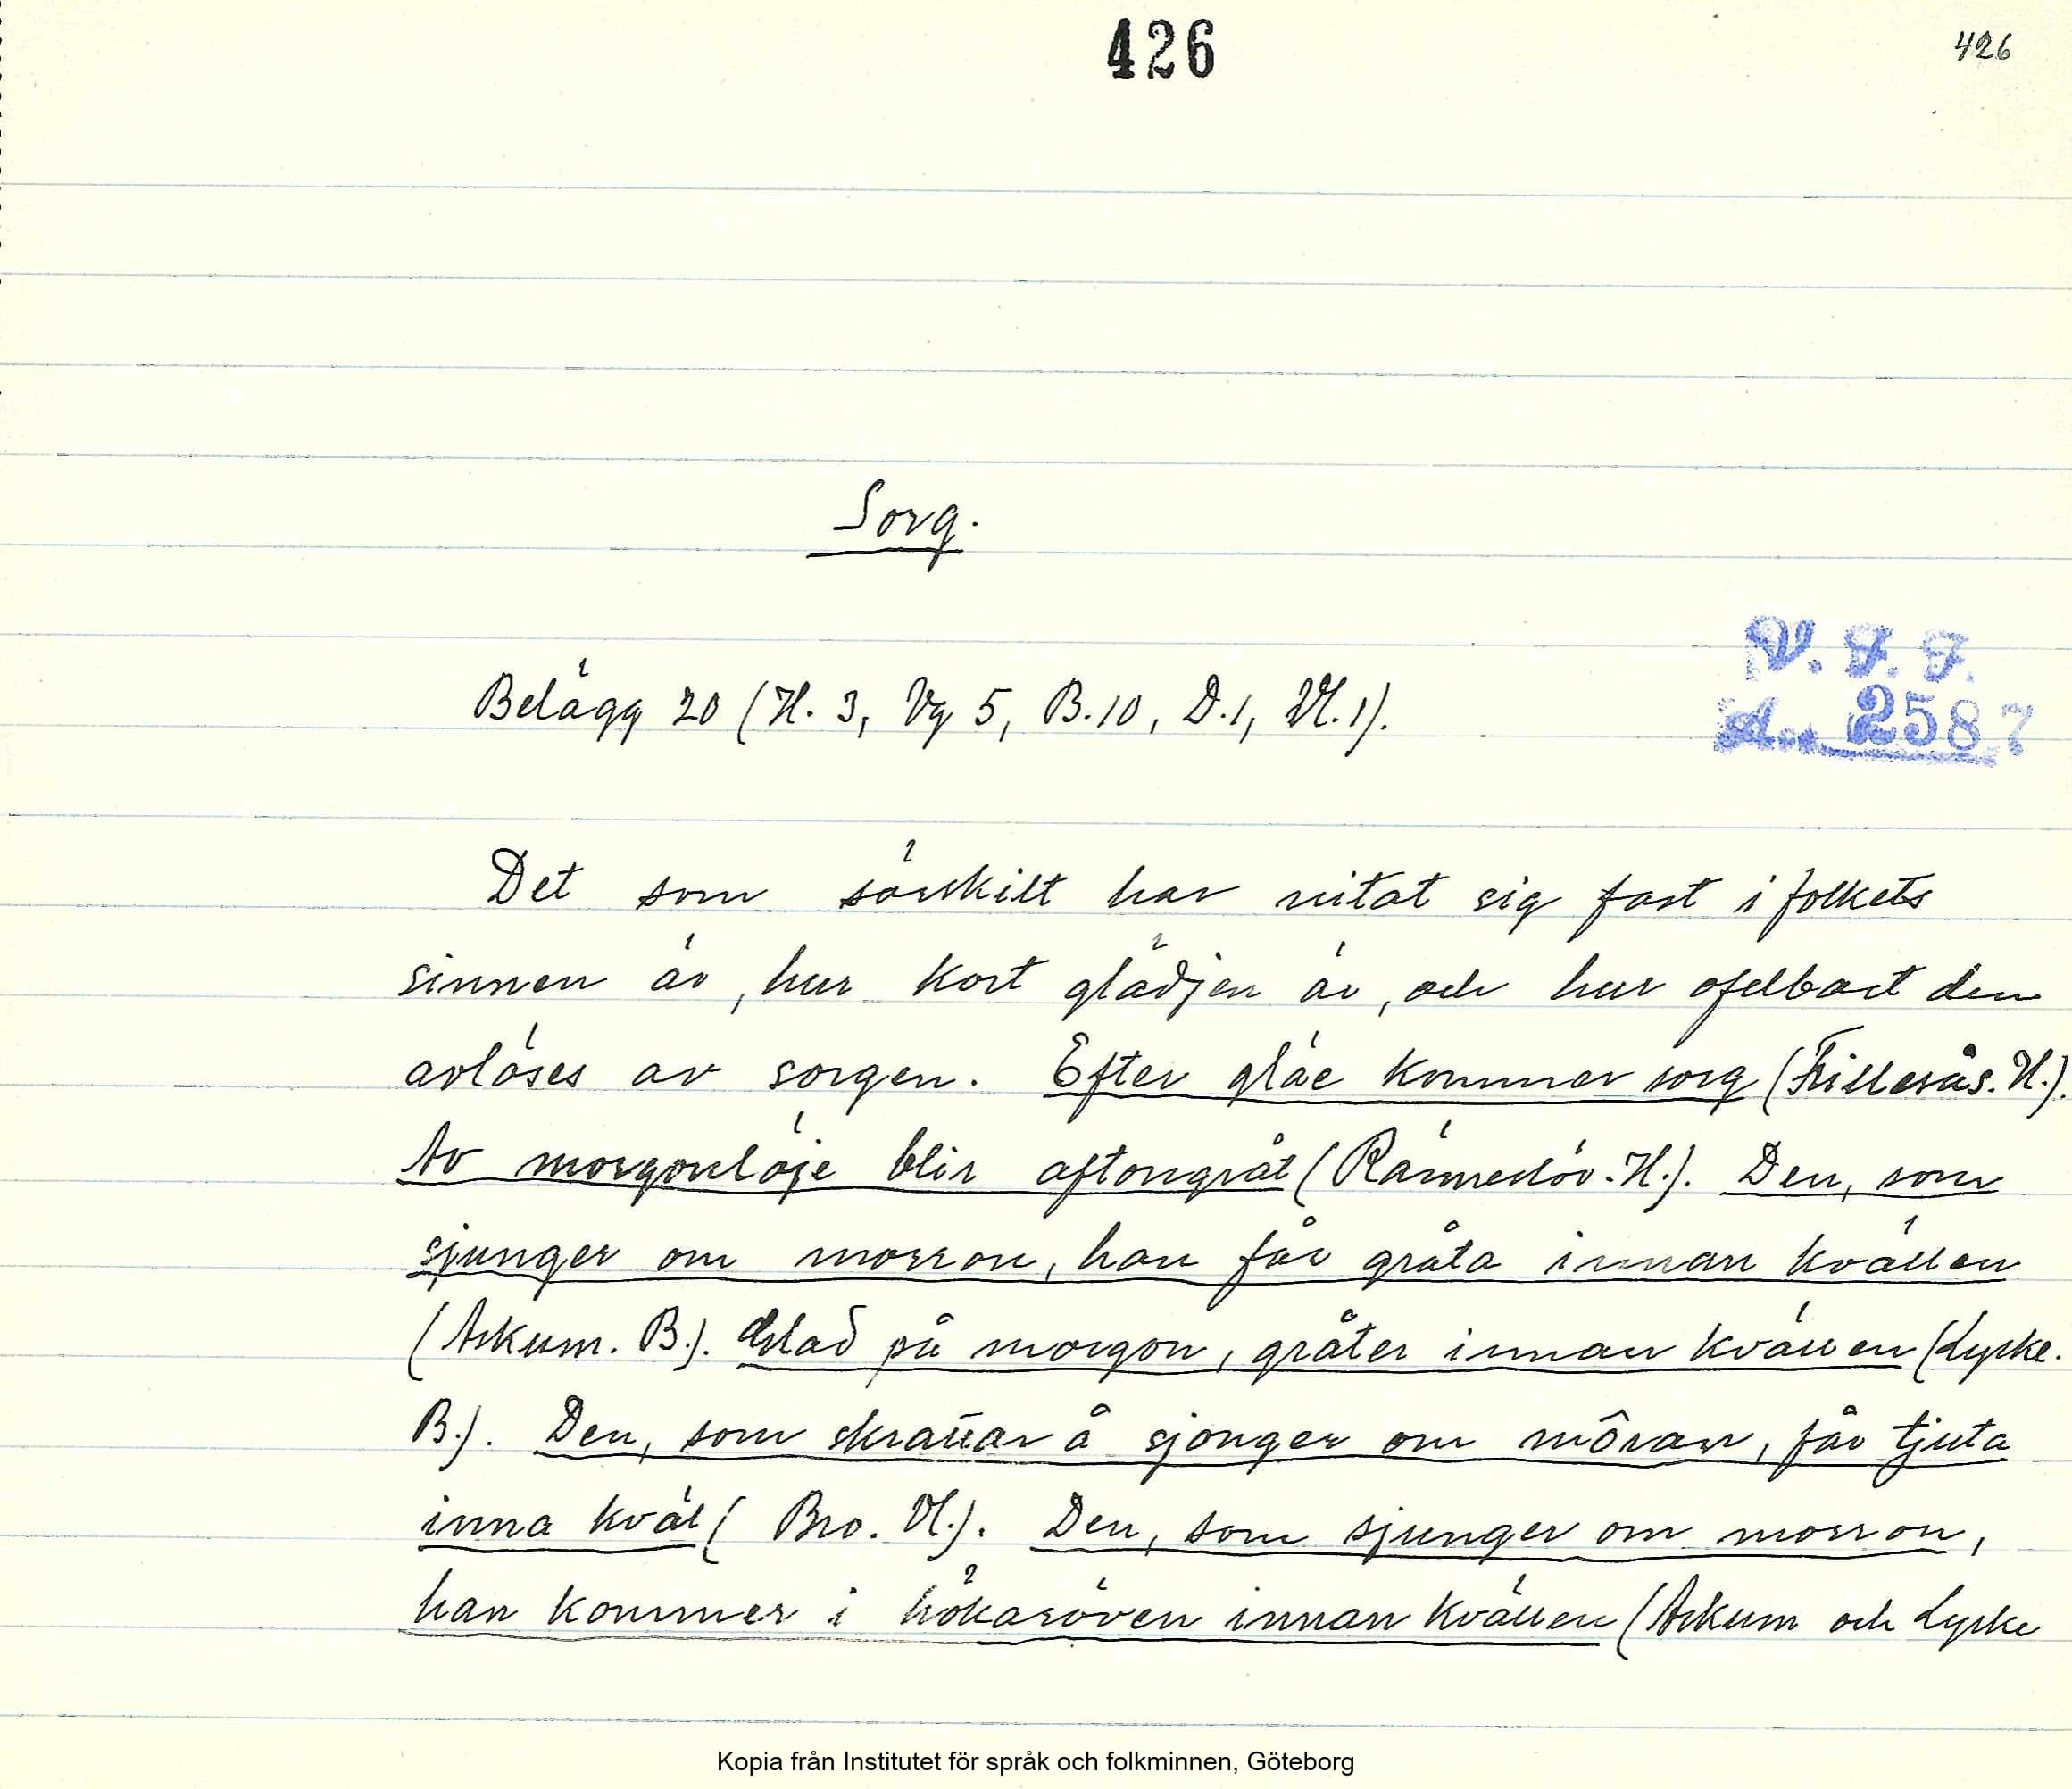 426
426
Sorg.
Belägg 20 (H. 3, Vg 5, B. 10, D. 1, Vl. 1).
V. F. F.
A. 2587
Det som särskilt har nitat sig fast i folkets
sinnen är, hur kort glädjen är, och hur ofelbart den
avlöses av sorgen. Efter gläe kommer sorg (Frillesås. H.).
Av morgonlöje blir aftongråt (Ränneslöv. H.). Den, som
sjunger om morron, han får gråta innan kvällen
(Askum. B.). Glad på morgon, gråter innan kvällen (Lyske.
B.). Den, som skrattar å sjonger om môran, får tjuta
inna kväl (Bro. Vl.). Den, som sjunger om morron,
han kommer i hökaröven innan kvällen (Askum och Lyske
Kopia från Institutet för språk och folkminnen, Göteborg